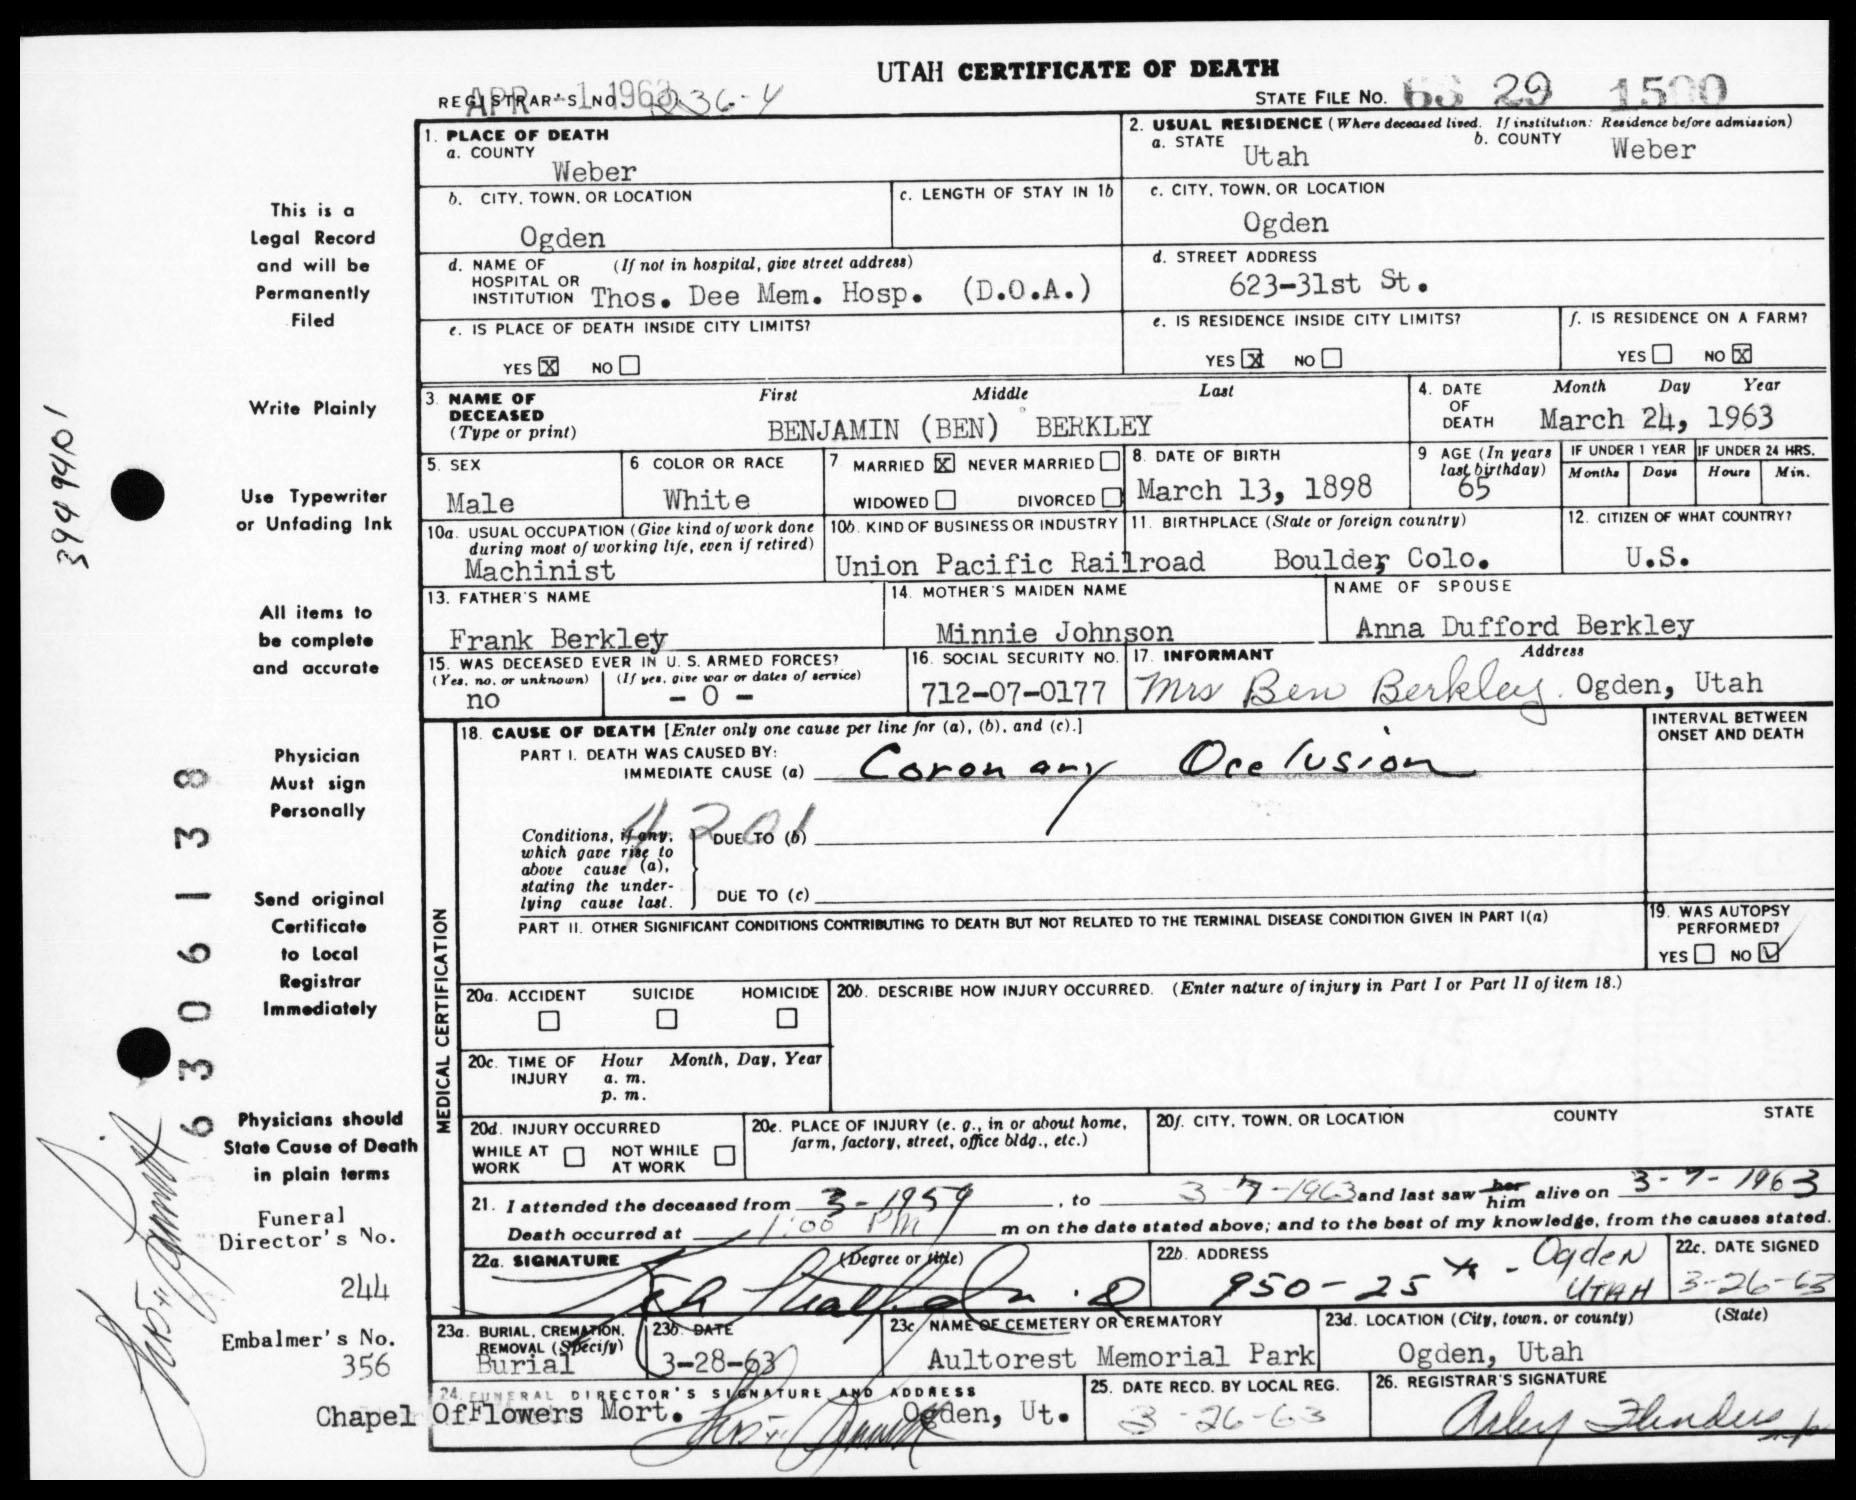 UTAH CERTIFICATE OF DEATH
REGISTRAR'S NO. 236-4
APR -1 1963
STATE FILE NO. 63 29 1500
1. PLACE OF DEATH
a. COUNTY
Weber
b. CITY, TOWN, OR LOCATION
Ogden
c. LENGTH OF STAY IN 1b
d. NAME OF HOSPITAL OR INSTITUTION (If not in hospital, give street address)
Thos. Dee Mem. Hosp. (D.O.A.)
e. IS PLACE OF DEATH INSIDE CITY LIMITS?
YES X NO
2. USUAL RESIDENCE (Where deceased lived. If institution: Residence before admission)
a. STATE
Utah
b. COUNTY
Weber
c. CITY, TOWN, OR LOCATION
Ogden
d. STREET ADDRESS
623-31st St.
e. IS RESIDENCE INSIDE CITY LIMITS?
YES X NO
f. IS RESIDENCE ON A FARM?
YES NO X
3. NAME OF DECEASED (Type or print)
First Middle Last
BENJAMIN (BEN) BERKLEY
4. DATE OF DEATH
Month Day Year
March 24, 1963
5. SEX
Male
6 COLOR OR RACE
White
7 MARRIED X NEVER MARRIED
WIDOWED DIVORCED
8. DATE OF BIRTH
March 13, 1898
9 AGE (In years last birthday)
65
IF UNDER 1 YEAR
Months Days
IF UNDER 24 HRS.
Hours Min.
10a. USUAL OCCUPATION (Give kind of work done during most of working life, even if retired)
Machinist
10b. KIND OF BUSINESS OR INDUSTRY
Union Pacific Railroad
11. BIRTHPLACE (State or foreign country)
Boulder, Colo.
12. CITIZEN OF WHAT COUNTRY?
U.S.
13. FATHER'S NAME
Frank Berkley
14. MOTHER'S MAIDEN NAME
Minnie Johnson
NAME OF SPOUSE
Anna Dufford Berkley
15. WAS DECEASED EVER IN U.S. ARMED FORCES?
(Yes, no, or unknown) (If yes, give war or dates of service)
no - 0 -
16. SOCIAL SECURITY NO.
712-07-0177
17. INFORMANT Address
Mrs Ben Berkley. Ogden, Utah
MEDICAL CERTIFICATION
18. CAUSE OF DEATH [Enter only one cause per line for (a), (b), and (c).]
INTERVAL BETWEEN ONSET AND DEATH
PART I. DEATH WAS CAUSED BY:
IMMEDIATE CAUSE (a) Coronary Occlusion
4201
Conditions, if any, which gave rise to above cause (a), stating the underlying cause last.
DUE TO (b)
DUE TO (c)
PART II. OTHER SIGNIFICANT CONDITIONS CONTRIBUTING TO DEATH BUT NOT RELATED TO THE TERMINAL DISEASE CONDITION GIVEN IN PART I(a)
19. WAS AUTOPSY PERFORMED?
YES NO ✓
20a. ACCIDENT SUICIDE HOMICIDE
20b. DESCRIBE HOW INJURY OCCURRED. (Enter nature of injury in Part I or Part II of item 18.)
20c. TIME OF INJURY Hour Month, Day, Year
a. m.
p. m.
20d. INJURY OCCURRED
WHILE AT WORK NOT WHILE AT WORK
20e. PLACE OF INJURY (e. g., in or about home, farm, factory, street, office bldg., etc.)
20f. CITY, TOWN, OR LOCATION COUNTY STATE
21. I attended the deceased from 3-1959, to 3-7-1963 and last saw her him alive on 3-7-1963
Death occurred at 1:00 PM m on the date stated above; and to the best of my knowledge, from the causes stated.
22a. SIGNATURE (Degree or title)
22b. ADDRESS
950-25 - Ogden UTAH
22c. DATE SIGNED
3-26-63
23a. BURIAL, CREMATION, REMOVAL (Specify)
Burial
23b. DATE
3-28-63
23c NAME OF CEMETERY OR CREMATORY
Aultorest Memorial Park
23d. LOCATION (City, town, or county) (State)
Ogden, Utah
24. FUNERAL DIRECTOR'S SIGNATURE AND ADDRESS
Chapel Of Flowers Mort. Ogden, Ut.
25. DATE RECD. BY LOCAL REG.
3-26-63
26. REGISTRAR'S SIGNATURE
Flinders
This is a
Legal Record
and will be
Permanently
Filed
Write Plainly
Use Typewriter
or Unfading Ink
All items to
be complete
and accurate
Physician
Must sign
Personally
Send original
Certificate
to Local
Registrar
Immediately
Physicians should
State Cause of Death
in plain terms
Funeral
Director's No.
244
Embalmer's No.
356
3949401
6306138